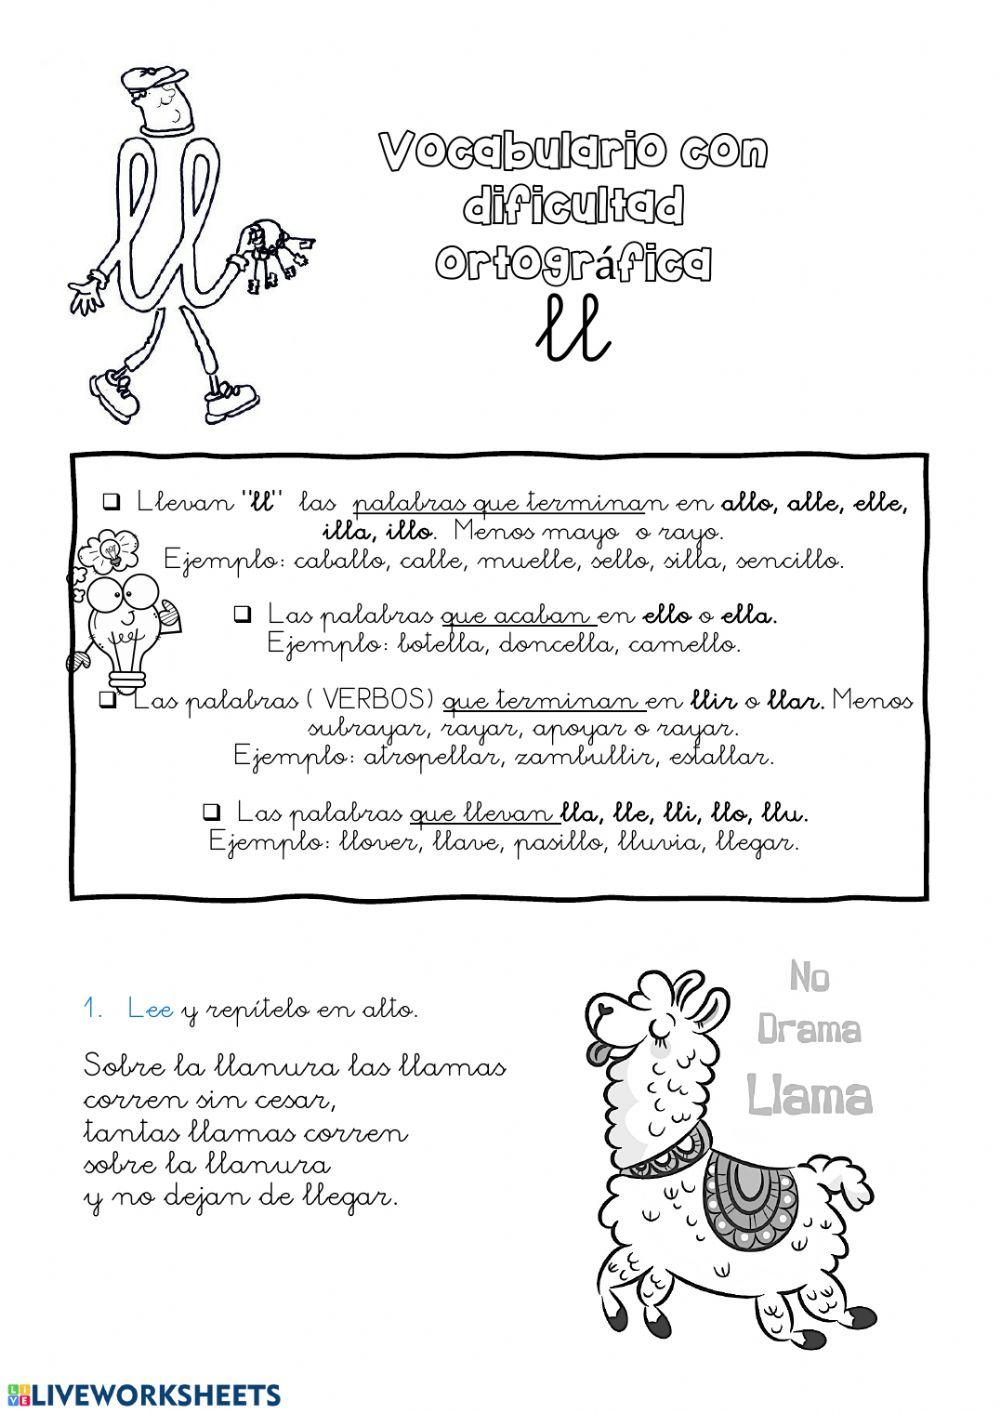 Vocabulario con
dificultad
ortográfica
ll
❑ Llevan "ll" las palabras que terminan en allo, alle, elle,
illa, illo. Menos mayo o rayo.
Ejemplo: caballo, calle, muelle, sello, silla, sencillo.
❑ Las palabras que acaban en ello o ella.
Ejemplo: botella, doncella, camello.
❑ Las palabras ( VERBOS) que terminan en llir o llar. Menos
subrayar, rayar, apoyar o rayar.
Ejemplo: atropellar, zambullir, estallar.
❑ Las palabras que llevan lla, lle, lli, llo, llu.
Ejemplo: llover, llave, pasillo, lluvia, llegar.
1. Lee y repítelo en alto.
Sobre la llanura las llamas
corren sin cesar,
tantas llamas corren
sobre la llanura
y no dejan de llegar.
No
Drama
Llama
LIVE LIVEWORKSHEETS